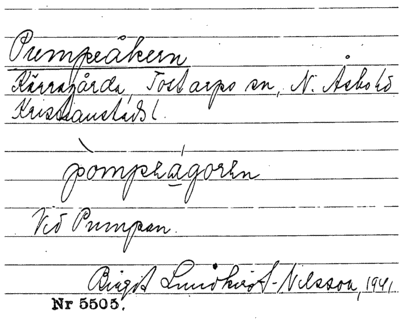 Pumpeåkern
Kärragårda, Tostarps sn, N. Åsbo hd
Kristianstads l.
pòmpəágorən
Vid Pumpan.
Birgit Lundkvist-Nilsson, 1941
Nr 5505.